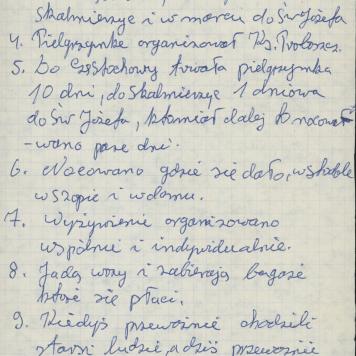 Skalmierzyc i w marcu do Św Józefa
4. Pielgrzymkę organizował Ks. Proboszcz.
5. Do Częstochowy trwała pielgrzymka
10 dni, do Skalmierzyc 1 dniowa
do Św Józefa, kto miał dalej to nocowa-
-wano parę dni.
6. Nocowano gdzie się dało, w stodole
w szopie i w domu.
7. Wyżywienie organizowano
wspólnie i indywidualnie.
8. Jadą wozy i zabierają bagaże
które się płaci.
9. Kiedyś przeważnie chodzili
starsi ludzie, a dziś przeważnie